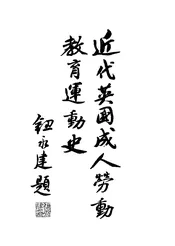 近代英國成人勞動
教育運動史
鈕永建題